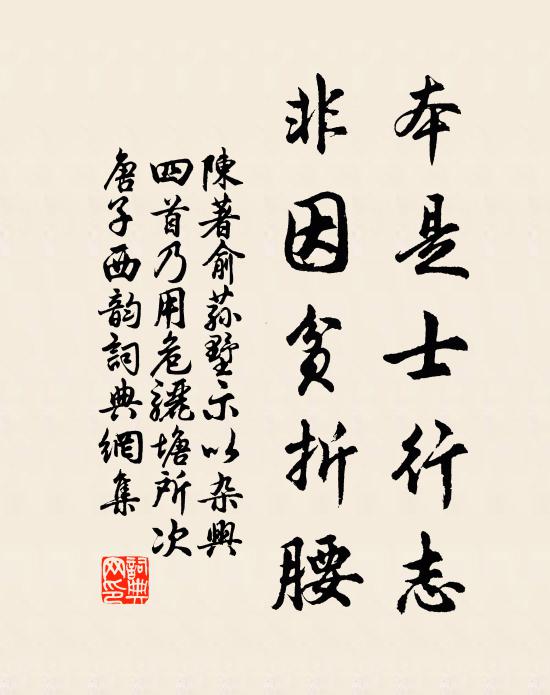 本是士行志
非因貧折腰
陳著俞蓀墅示以杂興
四首乃用危驪塘所次
唐子西韵詞典網集
詞典
网印